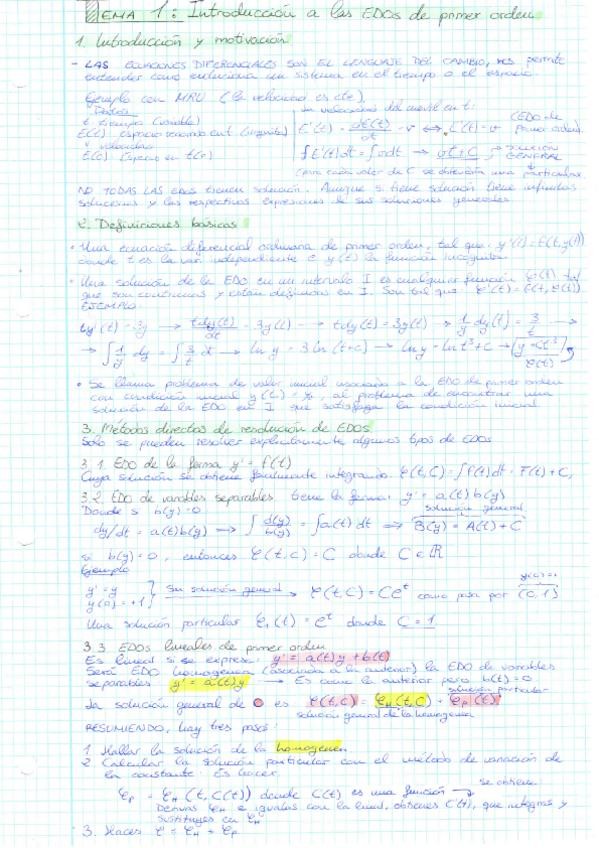 TEMA 1: Introducción a las EDOs de primer orden
1. Introducción y motivación
- LAS ECUACIONES DIFERENCIALES SON EL LENGUAJE DEL CAMBIO, nos permite
entender como evoluciona un sistema en el tiempo o el espacio.
Ejemplo con MRU (la velocidad es cte)
Datos
t tiempo (variable)
E(t) espacio recorrido en t (incógnita)
v velocidad
E(0) Espacio en t(0)
v velocidad del móvil en t:
E'(t) = dE(t)/dt = v ⟺ E'(t) = v (EDO de primer orden)
∫E'(t)dt = ∫vdt → vt + C → SOLUCIÓN GENERAL
(para cada valor de C se obtendrá una particular)
NO TODAS LAS EDOS tienen solución. Aunque si tiene solución tiene infinitas
soluciones y las respectivas expresiones de sus soluciones generales
2. Definiciones básicas
• Una ecuación diferencial ordinaria de primer orden, tal que: y'(t) = f(t, y(t))
donde t es la var. independiente e y(t) la función incógnita.
• Una solución de la EDO en un intervalo I es cualquier función φ(t) tal
que son continuas y están definidas en I. Son tal que φ'(t) = f(t, φ(t))
EJEMPLO
ty'(t) = 3y → t dy(t)/dt = 3y(t) → t dy(t) = 3y(t) → 1/y dy(t) = 3/t →
→ ∫ 1/y dy = ∫ 3/t dt → ln y = 3 ln(t+c) → ln y = ln t³ + C → y = Ct³
φ(t)
• Se llama problema de valor inicial asociado a la EDO de primer orden
con condición inicial y(t₀) = y₀, al problema de encontrar una
solución de la EDO en I que satisfaga la condición inicial
3. Métodos directos de resolución de EDOs
Solo se pueden resolver explícitamente algunos tipos de EDOs
3.1. EDO de la forma y' = f(t)
Cuya solución se obtiene fácilmente integrando. φ(t,C) = ∫f(t)dt = F(t) + C,
3.2. EDO de variables separables tiene la forma: y' = a(t) b(y)
Donde si b(y) ≠ 0 solución general
dy/dt = a(t)b(y) → ∫ d(y)/b(y) = ∫a(t) dt ⟹ B(y) = A(t) + C
si b(y) = 0, entonces φ(t,C) = C donde C ∈ ℝ
Ejemplo
y' = y
y(0) = +1
Su solución general → φ(t,C) = Ce^t como pasa por (0,1)
Una solución particular φ₁(t) = e^t donde C = 1
3.3. EDOs lineales de primer orden
Es lineal si se expresa: y' = a(t)y + b(t)
Será EDO homogénea (asociada a la anterior) la EDO de variables
separables y' = a(t)y → Es como la anterior pero b(t) = 0
solución particular
La solución general de es φ(t,C) = φH(t,C) + φP(t)
solución general de la homogénea
RESUMIENDO, hay tres pasos:
1. Hallar la solución de la homogénea
2. Calcular la solución particular con el método de variación de
la constante. Es hacer:
φP = φH(t, C(t)) donde C(t) es una función → se obtiene
Derivas φH e igualas con la lineal, obtienes C'(t), que integras y
sustituyes en φH
3. Haces φ = φH + φP